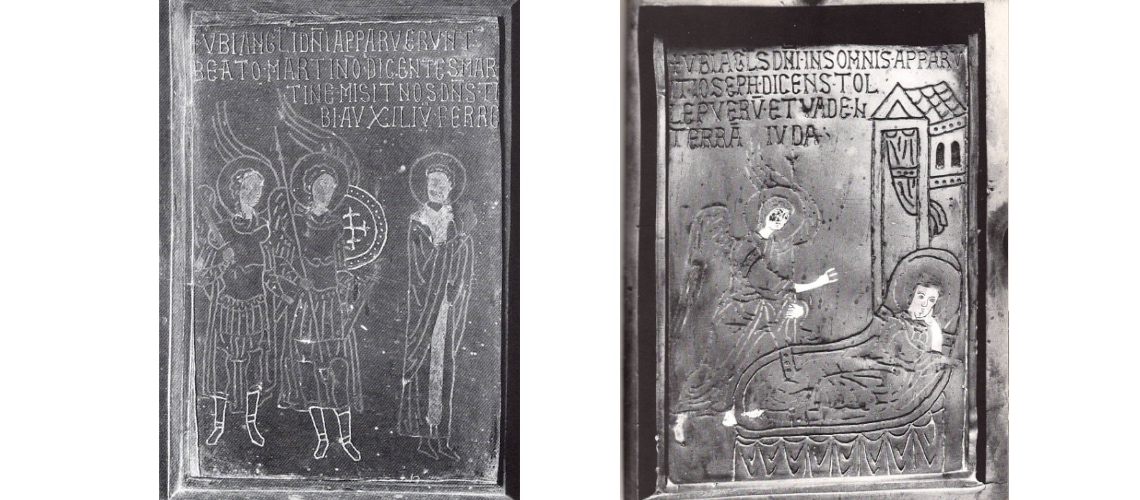 VBIANGLIDN̄IAPPARVERVNT
BEATO·MARTINO·DICENTES MAR
TINE·MISIT NOS DN̄S·TI
BI AVXILIV̄ FERRE
+VBI AGL̄S DN̄I·INSOMNIS·APPARV
IT IOSEPH·DICENS·TOL
LE PVERV̄·ET VADE·IN
TERRĀ IVDA